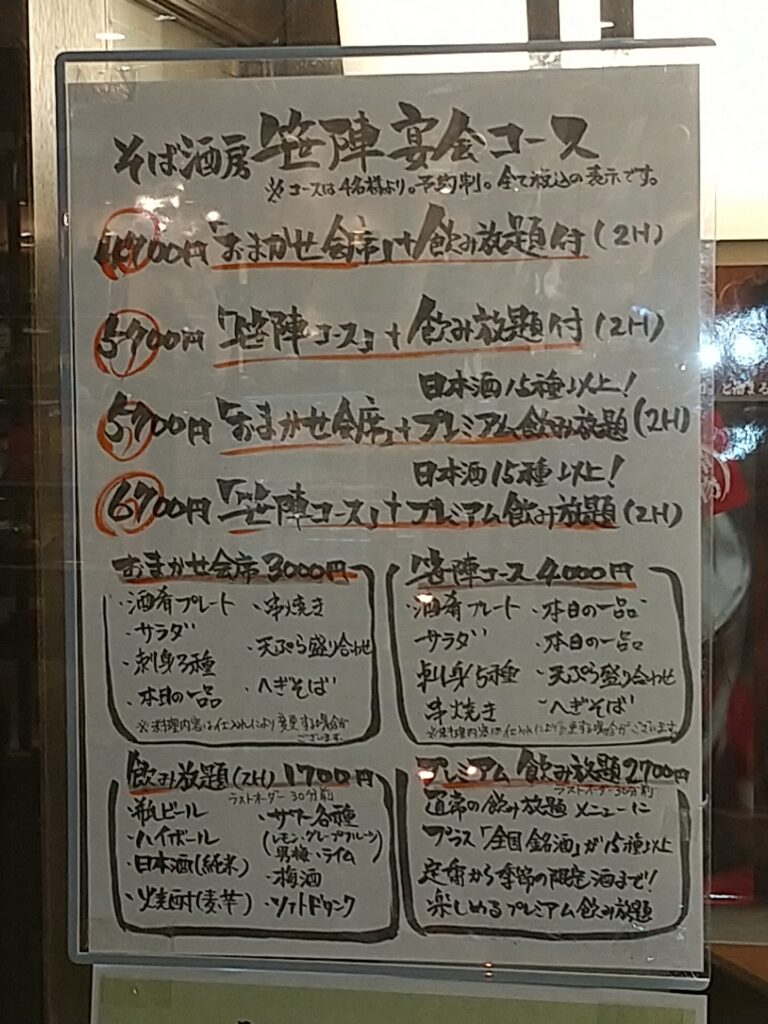 そば酒房 笹陣 宴会コース
※コースは4名様より。予約制。全て税込の表示です。
4700円「おまかせ会席」+飲み放題付(2H)
5700円「笹陣コース」+飲み放題付(2H)
日本酒15種以上!
5700円「おまかせ会席」+プレミアム飲み放題(2H)
日本酒15種以上!
6700円「笹陣コース」+プレミアム飲み放題(2H)
おまかせ会席 3000円
・酒肴プレート
・サラダ
・刺身3種
・本日の一品
・串焼き
・天ぷら盛り合わせ
・へぎそば
※料理内容は仕入れにより変更する場合が
ございます。
笹陣コース 4000円
・酒肴プレート
サラダ
刺身5種
串焼き
・本日の一品
・本日の一品
・天ぷら盛り合わせ
へぎそば
※料理内容は仕入れにより変更する場合がございます。
飲み放題(2H) 1700円
ラストオーダー30分前
・瓶ビール
・ハイボール
・日本酒(純米)
・焼酎(麦・芋)
・サワー各種
(レモン・グレープフルーツ
男梅・ライム)
・梅酒
・ソフトドリンク
プレミアム 飲み放題 2700円
ラストオーダー30分前
通常の飲み放題メニューに
プラス「全国銘酒」が15種以上
定番から季節の限定酒まで!!
楽しめるプレミアム飲み放題